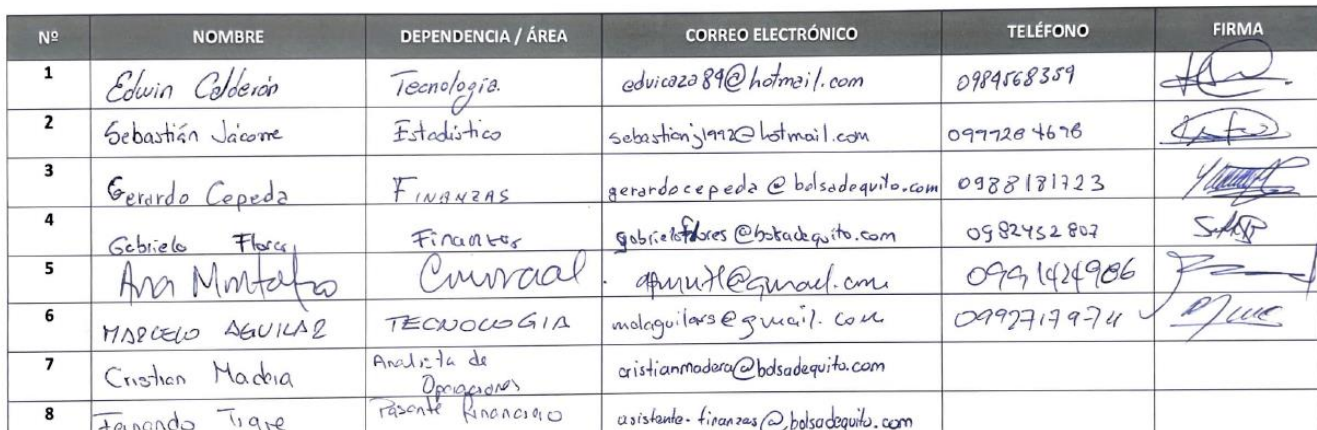 Nº NOMBRE DEPENDENCIA / ÁREA CORREO ELECTRÓNICO TELÉFONO FIRMA
1 Edwin Calderón Tecnología. edvicaza89@hotmail.com 0984568359
2 Sebastián Jácome Estadístico sebastianj1992@hotmail.com 0997284698
3 Gerardo Cepeda FINANZAS gerardocepeda@bolsadequito.com 0988181723
4 Gabriela Flores Finanzas gabrielaflores@bolsadequito.com 0982452802
5 Ana 0991424906
6 MARCELO AGUILAR TECNOLOGIA malaguilars@gmail.com 0992717974
7 Cristian Madera Analista de cristianmadera@bolsadequito.com
Operaciones
8 Fernando Tigre Pasante Financiero asistente-finanzas@bolsadequito.com